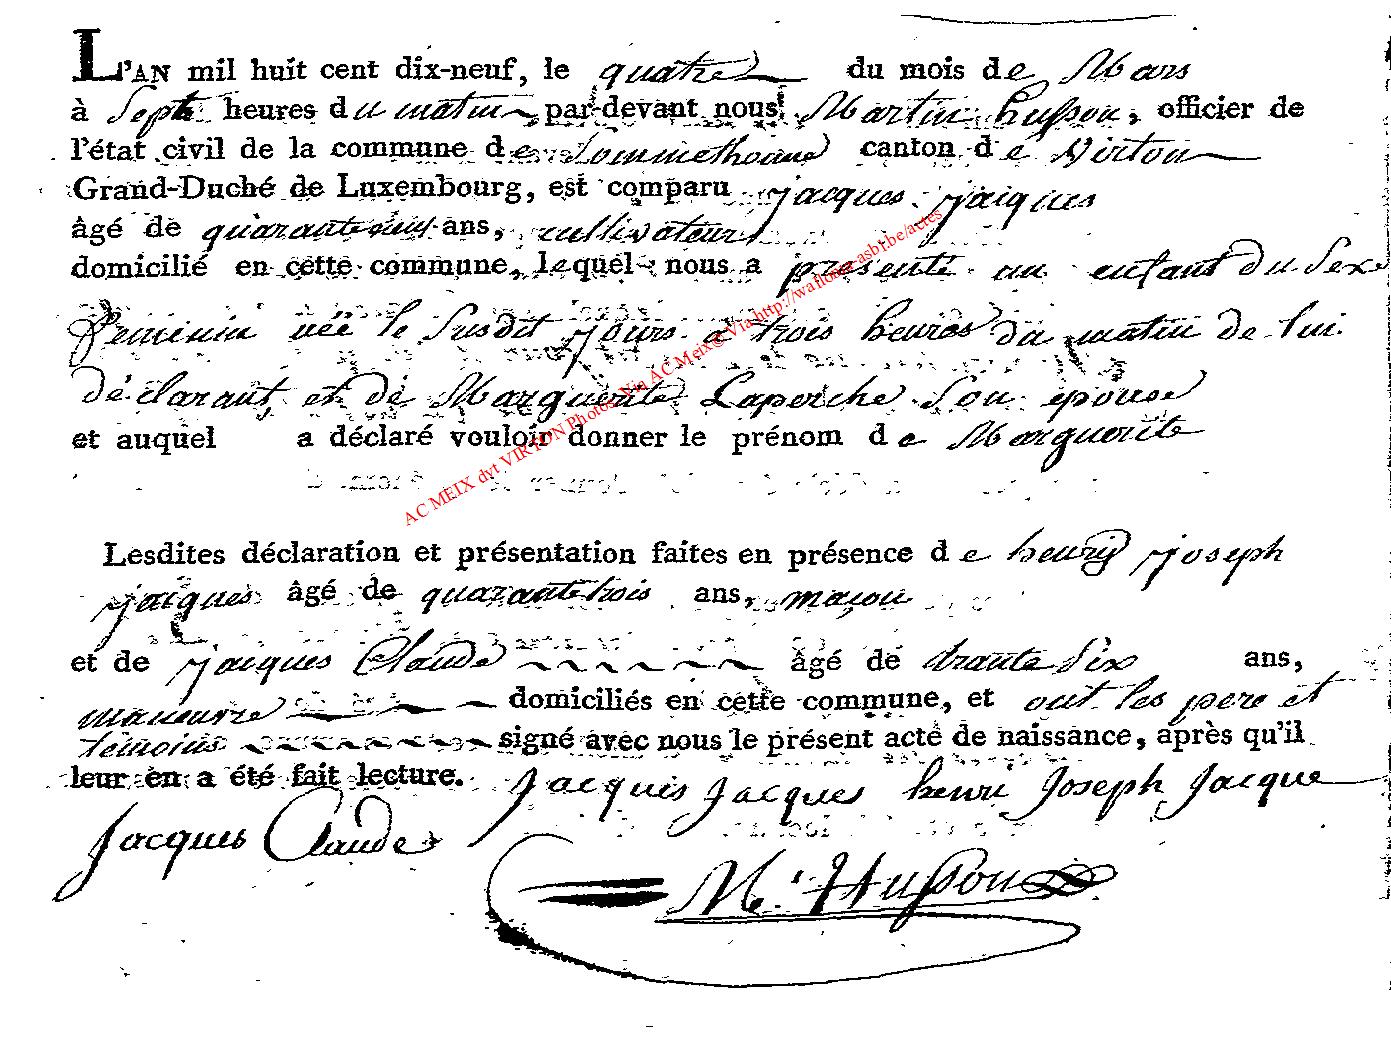 L'AN mil huit cent dix-neuf, le quatre du mois de Mars
à Sept heures du matin par-devant nous Martin husson, officier de
l'état civil de la commune de Sommethonne canton de Virton
Grand-Duché de Luxembourg, est comparu jacques jaiques
âgé de ans, cultivateur
domicilié en cette commune, lequel nous a présenté un enfant du Sexe
feminin née le Susdit jours a trois heures du matin de lui
déclarant, et de Marguerite Laperche Son épouse
et auquel a déclaré vouloir donner le prénom de Marguerite
AC MEIX dvt VIRTON Photos Via AC Meix@ Via http://wallonia-asbl.be/actes
Lesdites déclaration et présentation faites en présence de henry joseph
jaiques âgé de quarante trois ans, maçon
et de jaiques Claude âgé de trante Six ans,
maneuvre domiciliés en cette commune, et ont les pere et
témoins signé avec nous le présent acte de naissance, après qu'il
leur en a été fait lecture. Jacques Jacques henri Joseph Jacque
Jacques Claude
M. Husson